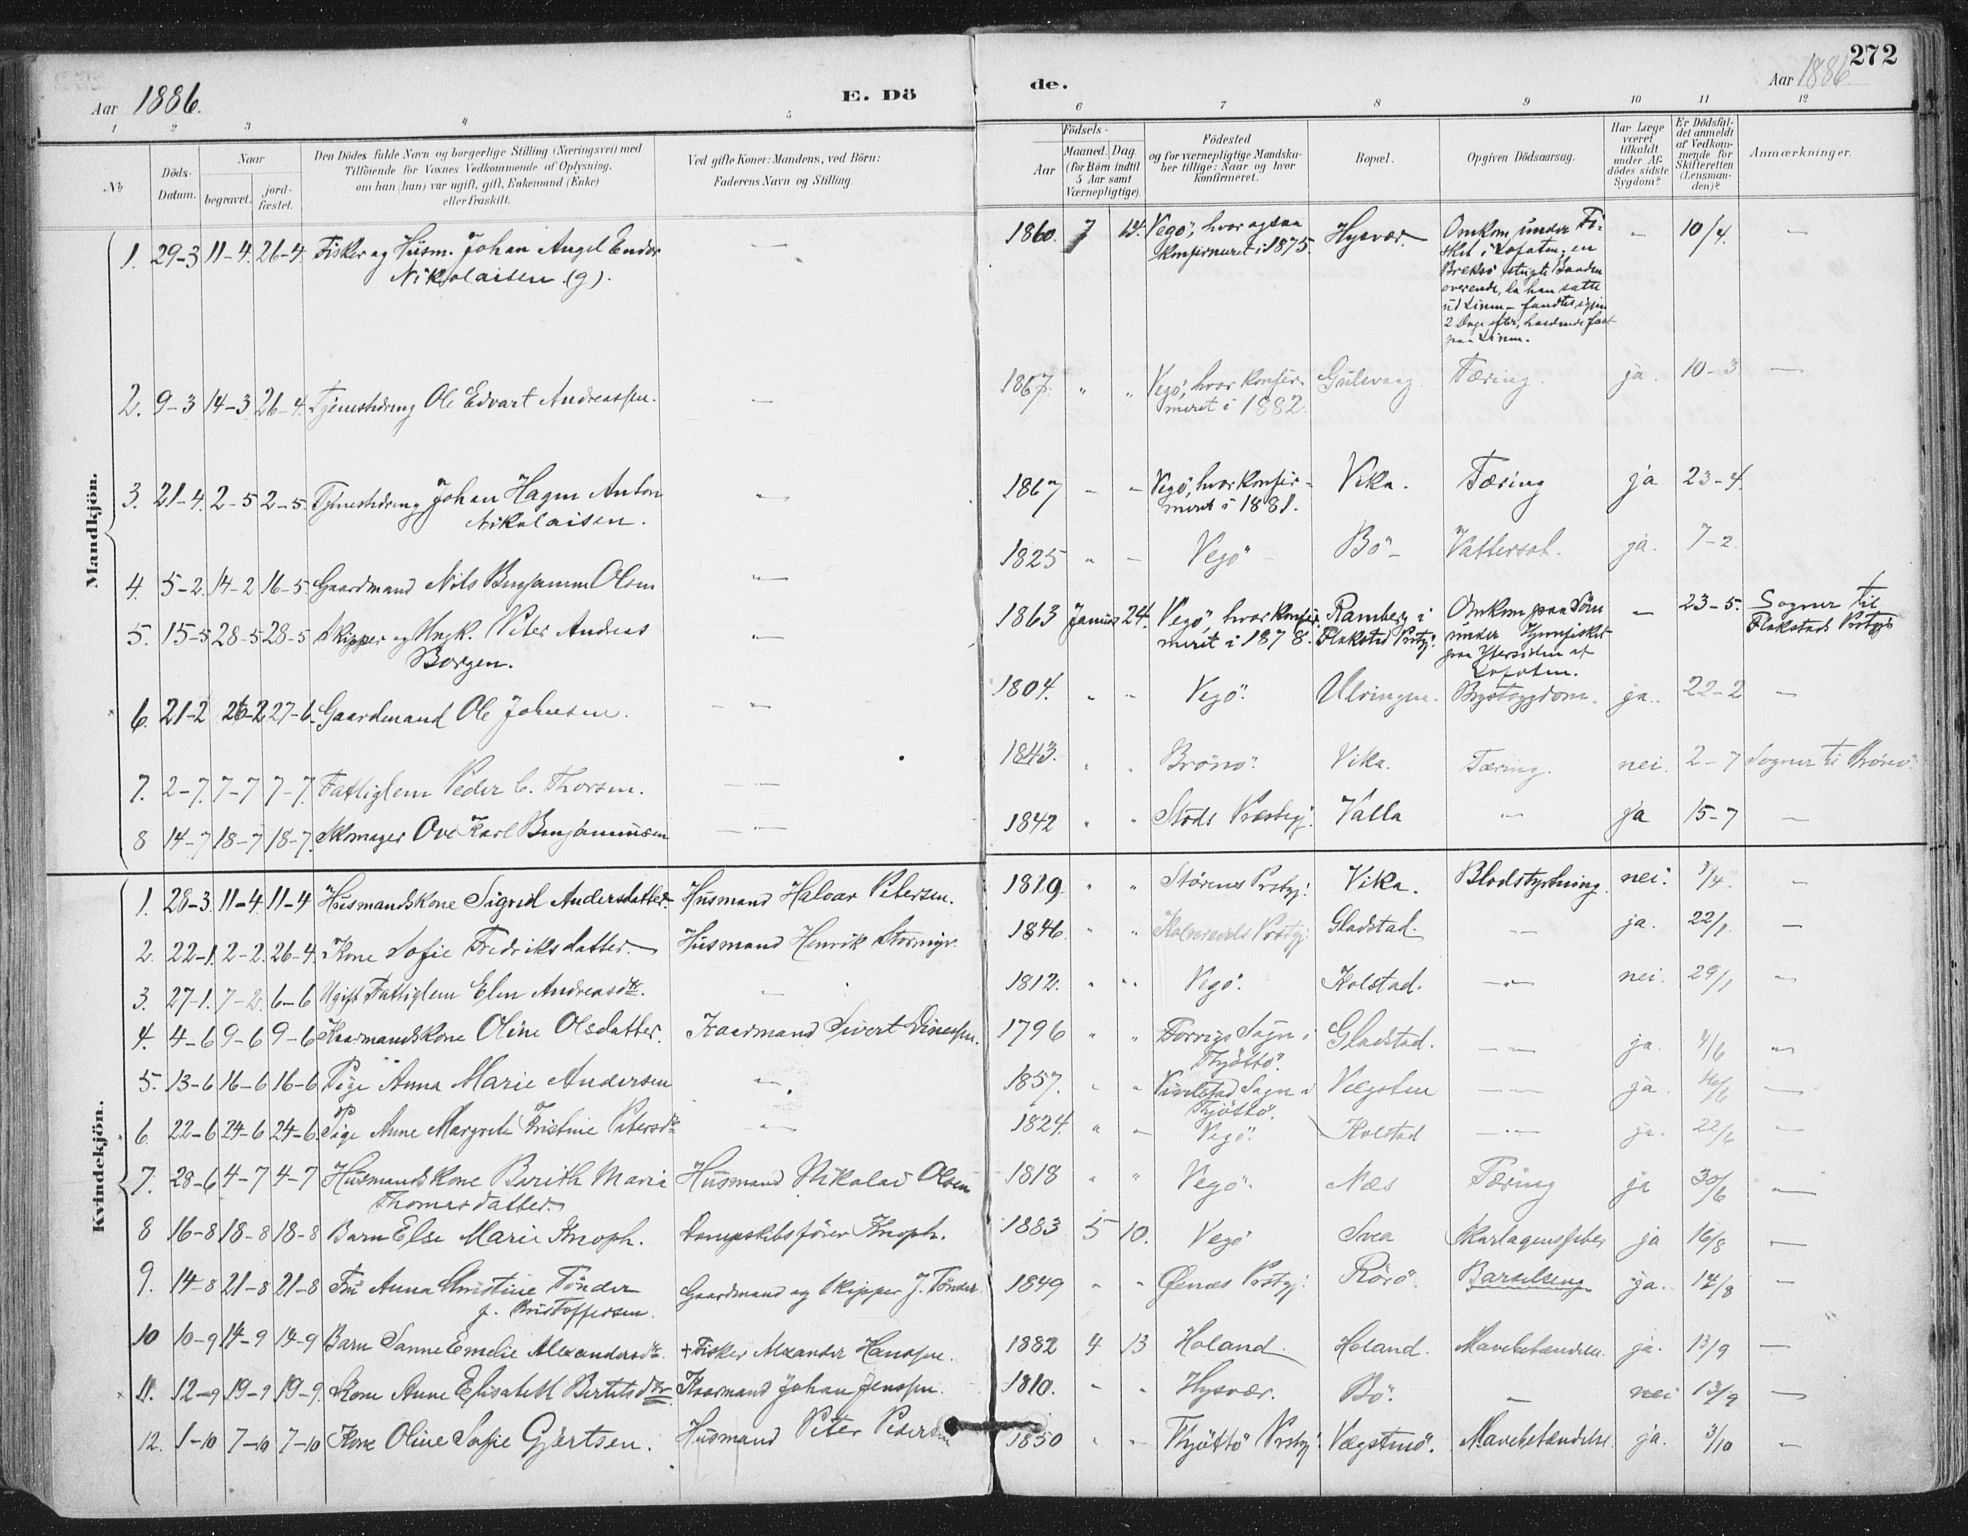 272
Aar 1886. E. Dö
de. Aar 1886
1 2 3 4 5
6 7 8 9 10 11 12
No
Döds-Datum.
Naar
begravet. jord-fæstet.
Den Dödes fulde Navn og borgerlige Stilling (Næringsvei) med
Tilföiende for Voxnes Vedkommende af Oplysning,
om han (hun) var ugift, gift, Enkemand (Enke)
eller fraskilt.
Ved gifte Koner: Mandens, ved Börn:
Faderens Navn og Stilling.
Födsels-
Aar Maaned. Dag
(for Börn indtil
5 Aar samt
Værnepligtige).
Födested
og for værnepligtige Mandska-
ber tillige: Naar og hvor
konfirmeret.
Bopæl.
Opgiven Dödsaarsag.
Har Læge
været
tilkaldt
under Af-
dödes sidste
Sygdom?
Er Dödsfal-
det anmeldt
af Vedkom-
mende for
Skifteretten
(Lensman-
den)?
Anmærkninger.
Mandkjön.
1. 29-3 11-4. 26-4. Fisker og Husm. Johan Angel Endor
Nikolaisen (g). — 1860. 7 14. Vegö, hvor ogsaa
konfirmeret i 1875. Hysvær. Omkom under Fi-
sket i Lofoten; en
Bræksö
overende, da han satte
ud Linen – fandtes igjen
2 Dage efter, fast
paa Linen. — 10/4. —
2. 9-3 14-3 26-4. Tjenestedreng Ole Edvart Andreassen. — 1867. " " Vegö, hvor konfir-
meret i 1882. Gulsvaag. Tæring. ja. 10-3 —
3. 21-4. 2-5 2-5. Tjenestedreng Johan Hagen Anton
Nikolaisen. — 1867 - - Vegö, hvor konfir-
meret i 1881. Vika. Tæring ja 23-4.
4. 5-2 14-2 16-5. Gaardmand Nils Benjamin Olsen — 1825 " — Vegö Bö Vattersot. ja. 7-2.
5. 15-5 28-5 28-5 Skipper og Ungk. Peter Andreas
Borgen. — 1863 Januar 24. Vegö, hvor konfir-
meret i 1878. Ramberg i
Flakstad Prstgj. Omkom paa Söen
under
paa Ydersiden af
Lofoten. — 23-5. Sogner til
Flakstads Prstgj.
6. 21-2 26-2 27-6. Gaardmand Ole Johnsen. — 1804. " " Vegö. Ulvingen. Brystsygdom. ja. 22-2 —
7. 2-7. 7-7 7-7. Fattiglem Peder C. Thorsen. — 1843. " " Brönö. Vika. Tæring. nei. 2-7 Sogner til Brönö.
8 14-7 18-7 18-7. Skomager Ove Karl Benjaminsen — 1842 " " Stods Præstegj. Valla " ja 15-7 —
Kvindekjön.
1. 28-3. 11-4. 11-4 Husmandskone Sigrid Andersdatter. Husmand Halvar Petersen. 1819. " " Störenes Prstgj. Vika. Blodstyrtning. nei. 1/4. "
2. 22-1. 2-2. 26-4. Kone Sofie Fredriksdatter. Husmand Henrik Stormyr. 1846. " " Prstgj. Gladstad. " ja. 22/1 —
3. 27-1. 7-2. 6-6 Ugift Fattiglem Elen Andreasdtr. — 1812. " " Vegö. Kolstad. " nei. 29/1 "
4. 4-6 9-6 9-6 Kaarmandskone Oline Olsdatter. Kaarmand Sivert Dinesen. 1796 " Sogn i
Thjöttö. Gladstad. " ja. 4/6 "
5. 13-6 16-6 16-6 Pige Anna Marie Andersen " 1857. " " Sogn i
Thjöttö. " ja. 16/6 —
6. 22-6 24-6 24-6. Pige Anne Margrete Kristine Petersdtr — 1824. " — Vegö. Kolstad " ja. 22/6 —
7. 28-6 4-7 4-7 Husmandskone Berith Maria
Thomasdatter. Husmand Nikolai Olsen 1818 " " Vegö. Næs Tæring ja 30/6 —
8 16-8 18-8 18-8 Barn Else Marie Knoph. Dampskibsförer Knoph. 1883 5 10. Vegö Svea Skarlagensfeber ja 16/8 —
9. 14-8 21-8 21-8 Fru Anna Christine Tönder
f. Kristoffersen. Gaardmand og Skipper J. Tönder. 1849 " " Öxnæs Prstgj. Rörö. Barselseng. ja. 14/8 —
10 10-9 14-9 14-9 Barn Sanne Emelie Alexandersdtr. + Fisker Alexander Hanssen. 1882 4 13 Holand. Holand. Mavebetændelse. ja. 13/9 —
11. 12-9 19-9 19-9. Kone Anne Elisabeth Bertelsdtr. Kaarmand Johan Jenssen. 1810. " " Hysvær. Bö. — nei 13/9 —
12. 1-10 7-10 7-10 Kone Oline Sofie Gjertsen. Husmand Peter Pedersen 1850 " — Thjöttö Prstgj. Vægstenö. Mavebetændelse. ja. 3/10 "